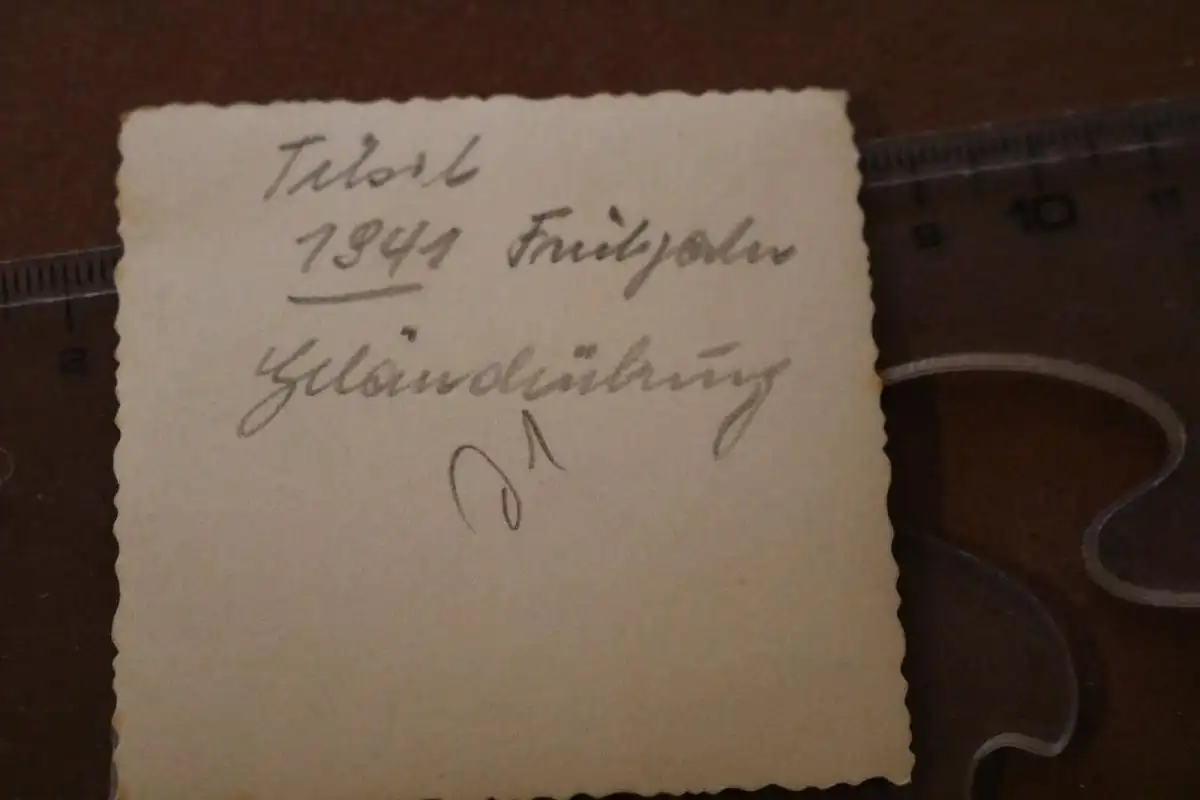 Tilsit
1941 Frühjahr
Geländeübung
8
9
10
11